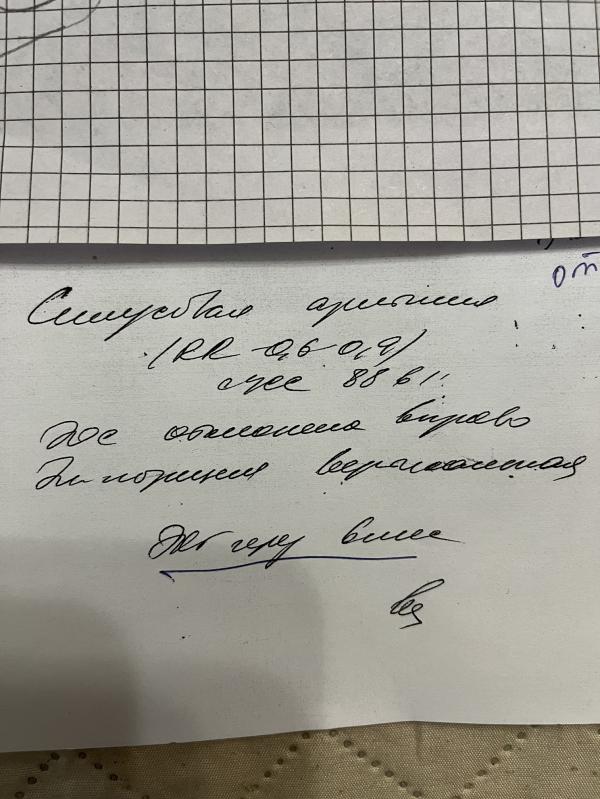 от
Синусовая аритмия
(RR-0,6-0,9)
чсс 88 в 1'
Эос отклонена вправо
Эл. позиция вертикальная